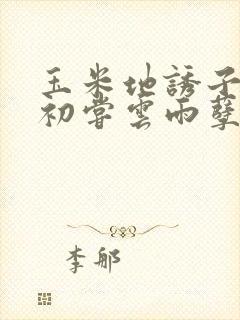 玉米地誘子
初嘗雲雨孽
李郍